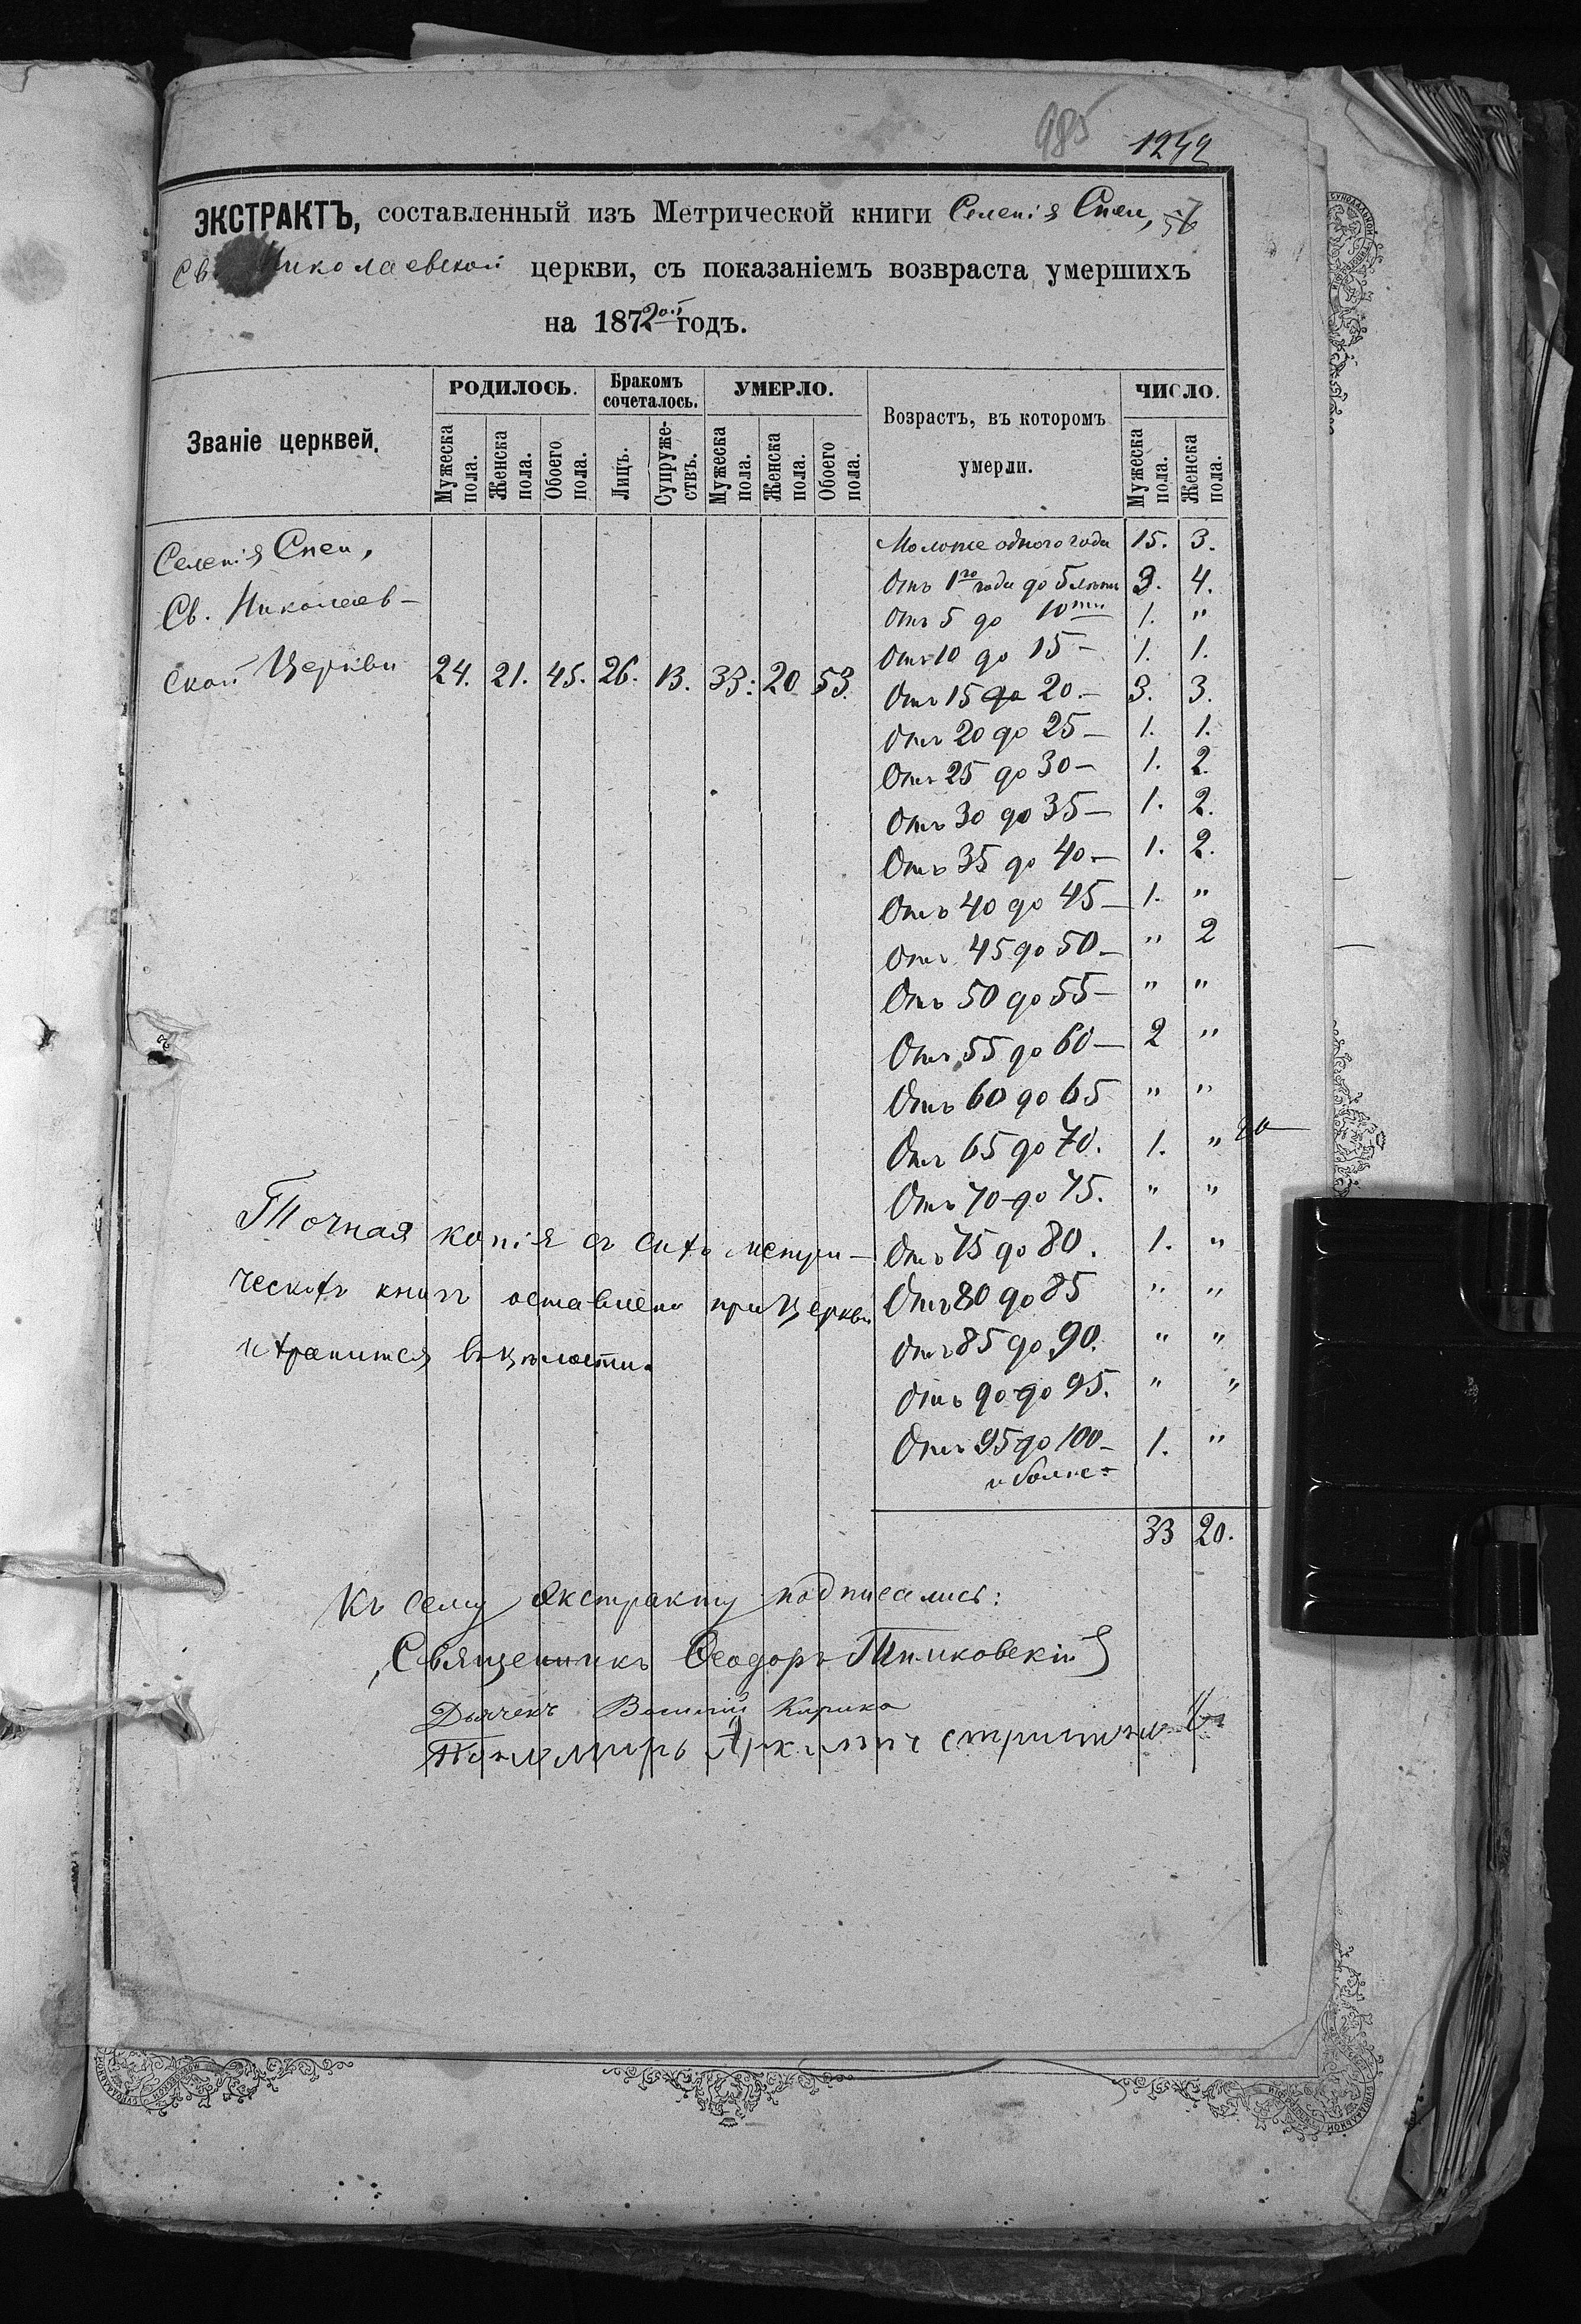 985
1242
ЭКСТРАКТЪ, составленный изъ Метрической книги Селенія Спеи,
Св. Николаевской церкви, съ показаніемъ возвраста умершихъ
на 1872ой годъ.
Званіе церквей.
РОДИЛОСЬ.
Бракомъ сочеталось.
УМЕРЛО.
Возрастъ, въ которомъ умерли.
ЧИСЛО.
Мужеска пола.
Женска пола.
Обоего пола.
Лицъ.
Супружествъ.
Мужеска пола.
Женска пола.
Обоего пола.
Мужеска пола.
Женска пола.
Селенія Спеи,
Св. Николаев-
ской Церкви 24. 21. 45. 26. 13. 33. 20 53.
Моложе одного года 15. 3.
Отъ 1го года до 5 лѣтъ 3. 4.
Отъ 5 до 10ти 1. "
Отъ 10 до 15 - 1. 1.
Отъ 15 до 20. - 3. 3.
Отъ 20 до 25 - 1. 1.
Отъ 25 до 30 - 1. 2.
Отъ 30 до 35 - 1. 2.
Отъ 35 до 40 - 1. 2.
Отъ 40 до 45 - 1. "
Отъ 45 до 50 - " 2
Отъ 50 до 55 - " "
Отъ 55 до 60 - 2 "
Отъ 60 до 65 " "
Отъ 65 до 70. 1. "
Отъ 70 до 75. " "
Отъ 75 до 80. 1. "
Отъ 80 до 85 " "
Отъ 85 до 90. " "
Отъ 90 до 95. " "
Отъ 95 до 100 - 1. "
и болѣе
33 20.
Точная копія съ сихъ метри-
ческихъ книгъ оставлена при Церкви
и хранится въ цѣлости.
Къ сему Экстракту подписались:
Священникъ Ѳеодоръ
Дьячекъ Василій Кирика
Пономарь